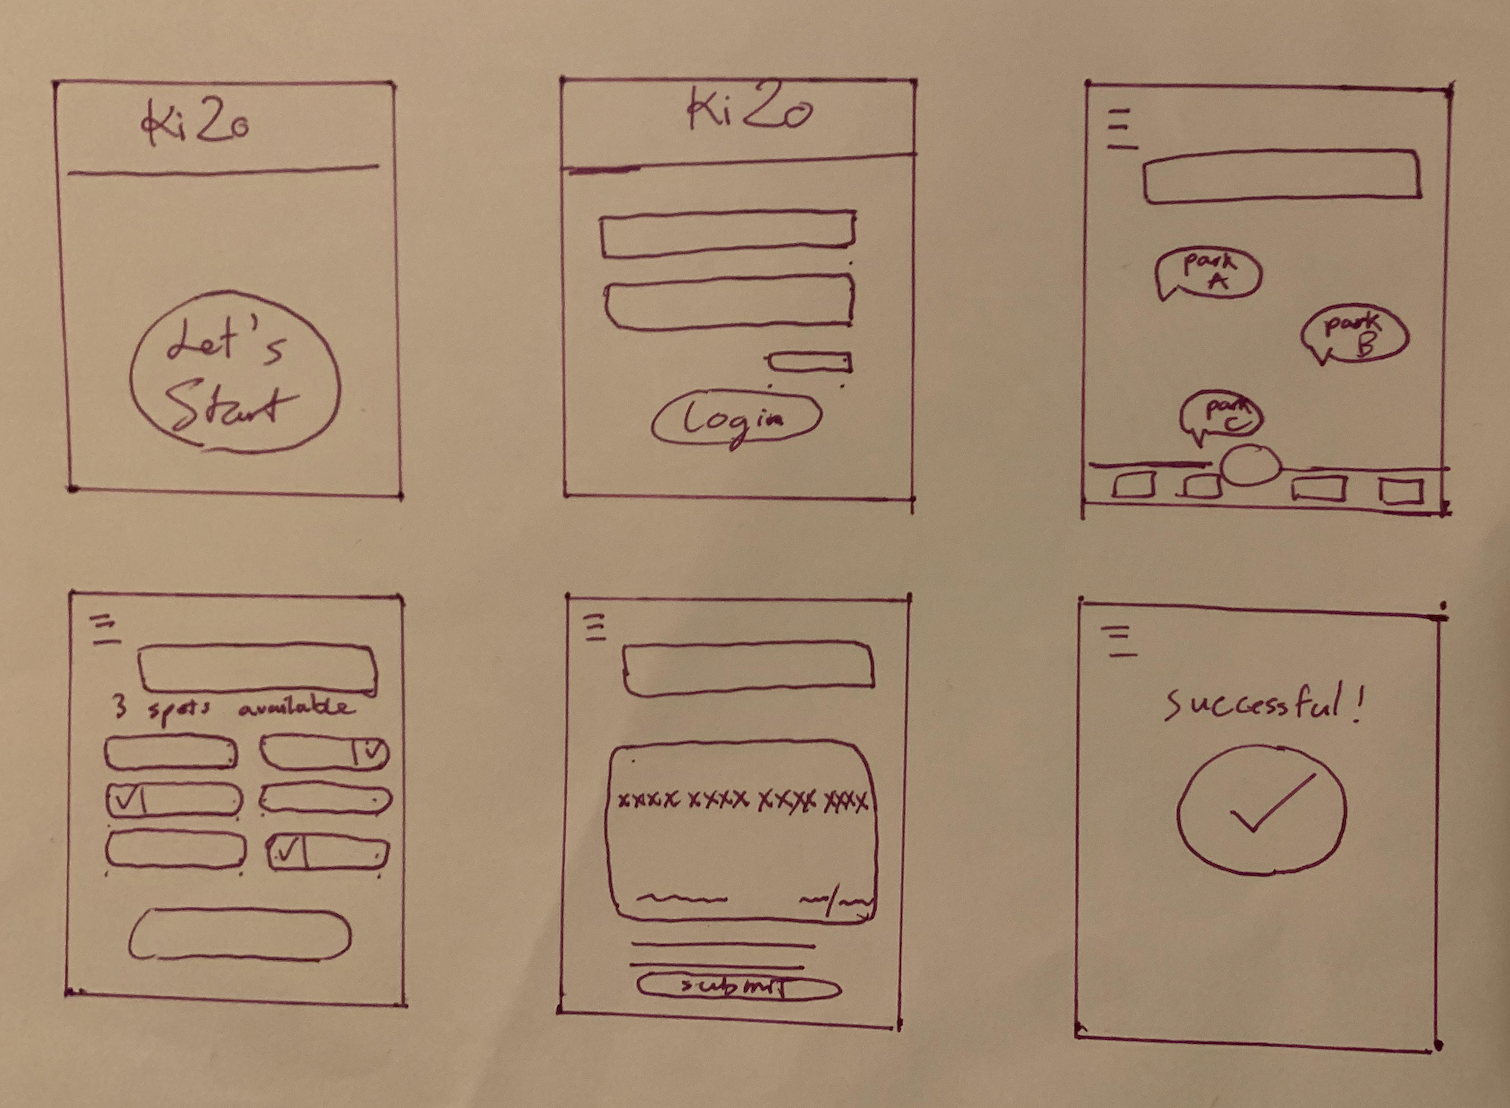 Ki Zo
Let's
Start
Ki Zo
Login
park
A
park
B
park
C
3 spots available
xxxx xxxx xxxx xxxx
submit
successful!